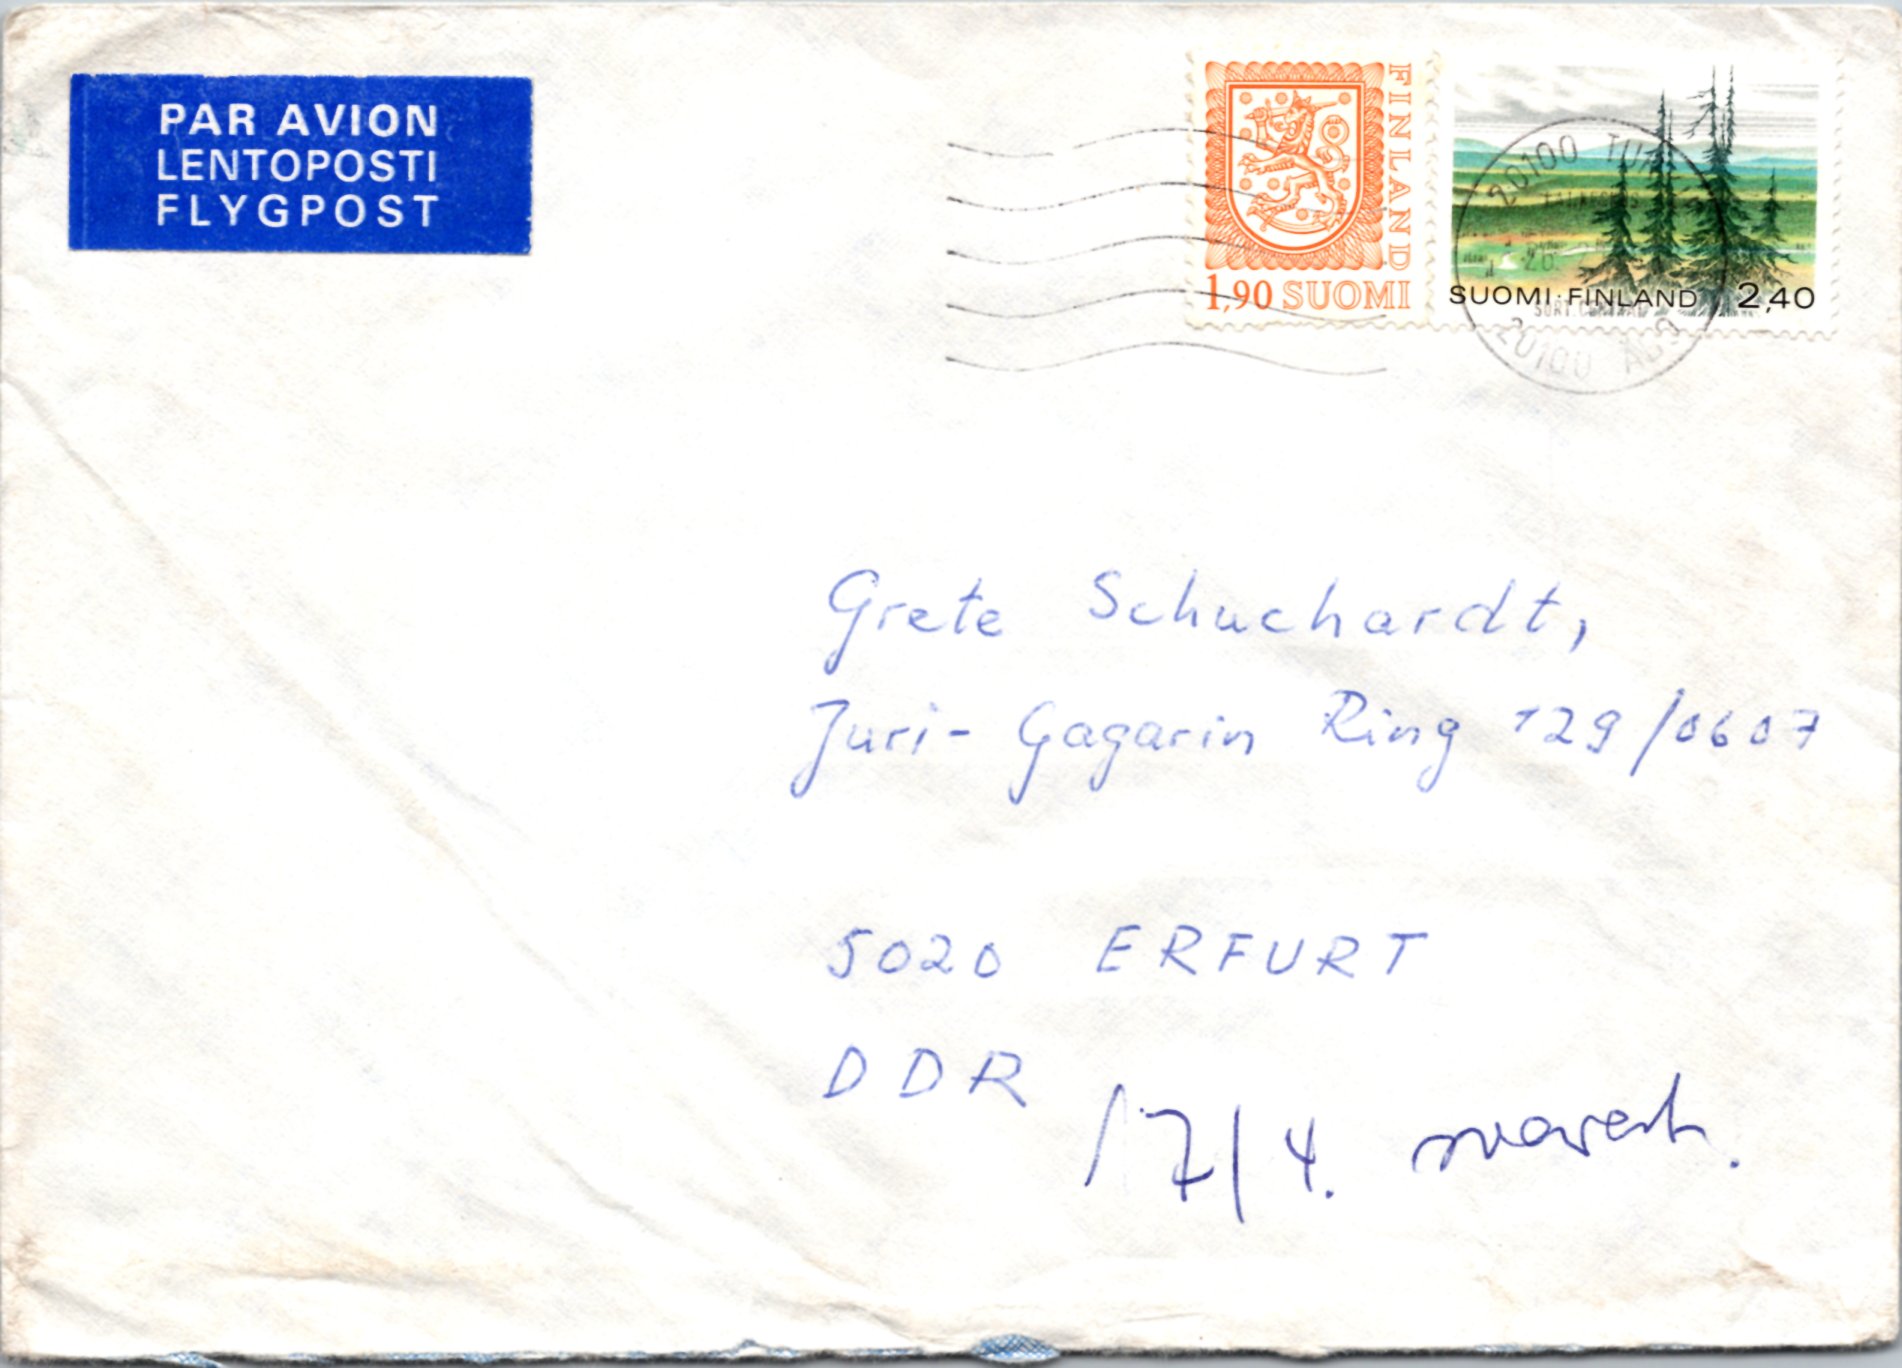 PAR AVION
LENTOPOSTI
FLYGPOST
FINLAND
1,90 SUOMI
SUOMI·FINLAND 2,40
20100
20100 ÅBO
Grete Schuchardt,
Juri-Gagarin Ring 129/0607
5020 ERFURT
DDR
17/4.